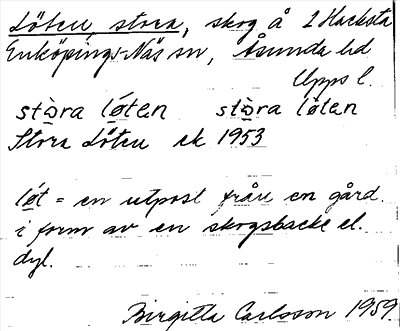 Löten, stora, skog å 2 Hacksta
Enköpings-Näs sn, Åsunda hd
Upps l.
stòra lǿten stòra lǿten
Stora Löten ek 1953
lǿt = en utpost från en gård
i form av en skogsbacke el.
dyl.
Birgitta Carlsson 1959